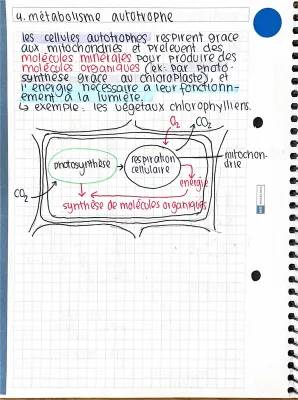 4. métabolisme autotrophe
les cellules autotrophes respirent grâce
aux mitochondries et prélèvent des
molécules minérales pour produire des
molécules organiques (ex: par photo-
synthèse grâce au chloroplaste), et
l'énergie nécessaire à leur fonctionn-
ement à la lumière.
↳ exemple: les végétaux chlorophylliens.
O₂
CO₂
photosynthèse
respiration
cellulaire
mitochon-
drie
énergie
CO₂
synthèse de molécules organiques